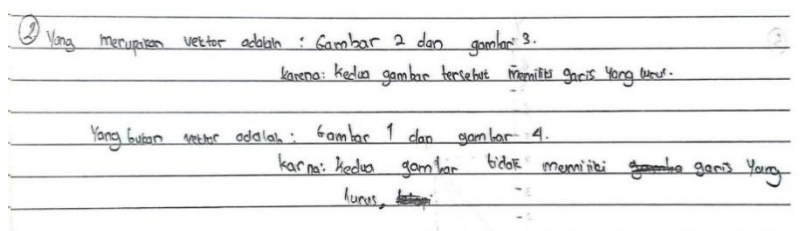 ② Yang merupakan vektor adalah : Gambar 2 dan gambar 3.
karena: Kedua gambar tersebut memiliki garis yang lurus.
Yang bukan vektor adalah : Gambar 1 dan gambar 4.
karna: Kedua gambar tidak memiliki garis yang
lurus,